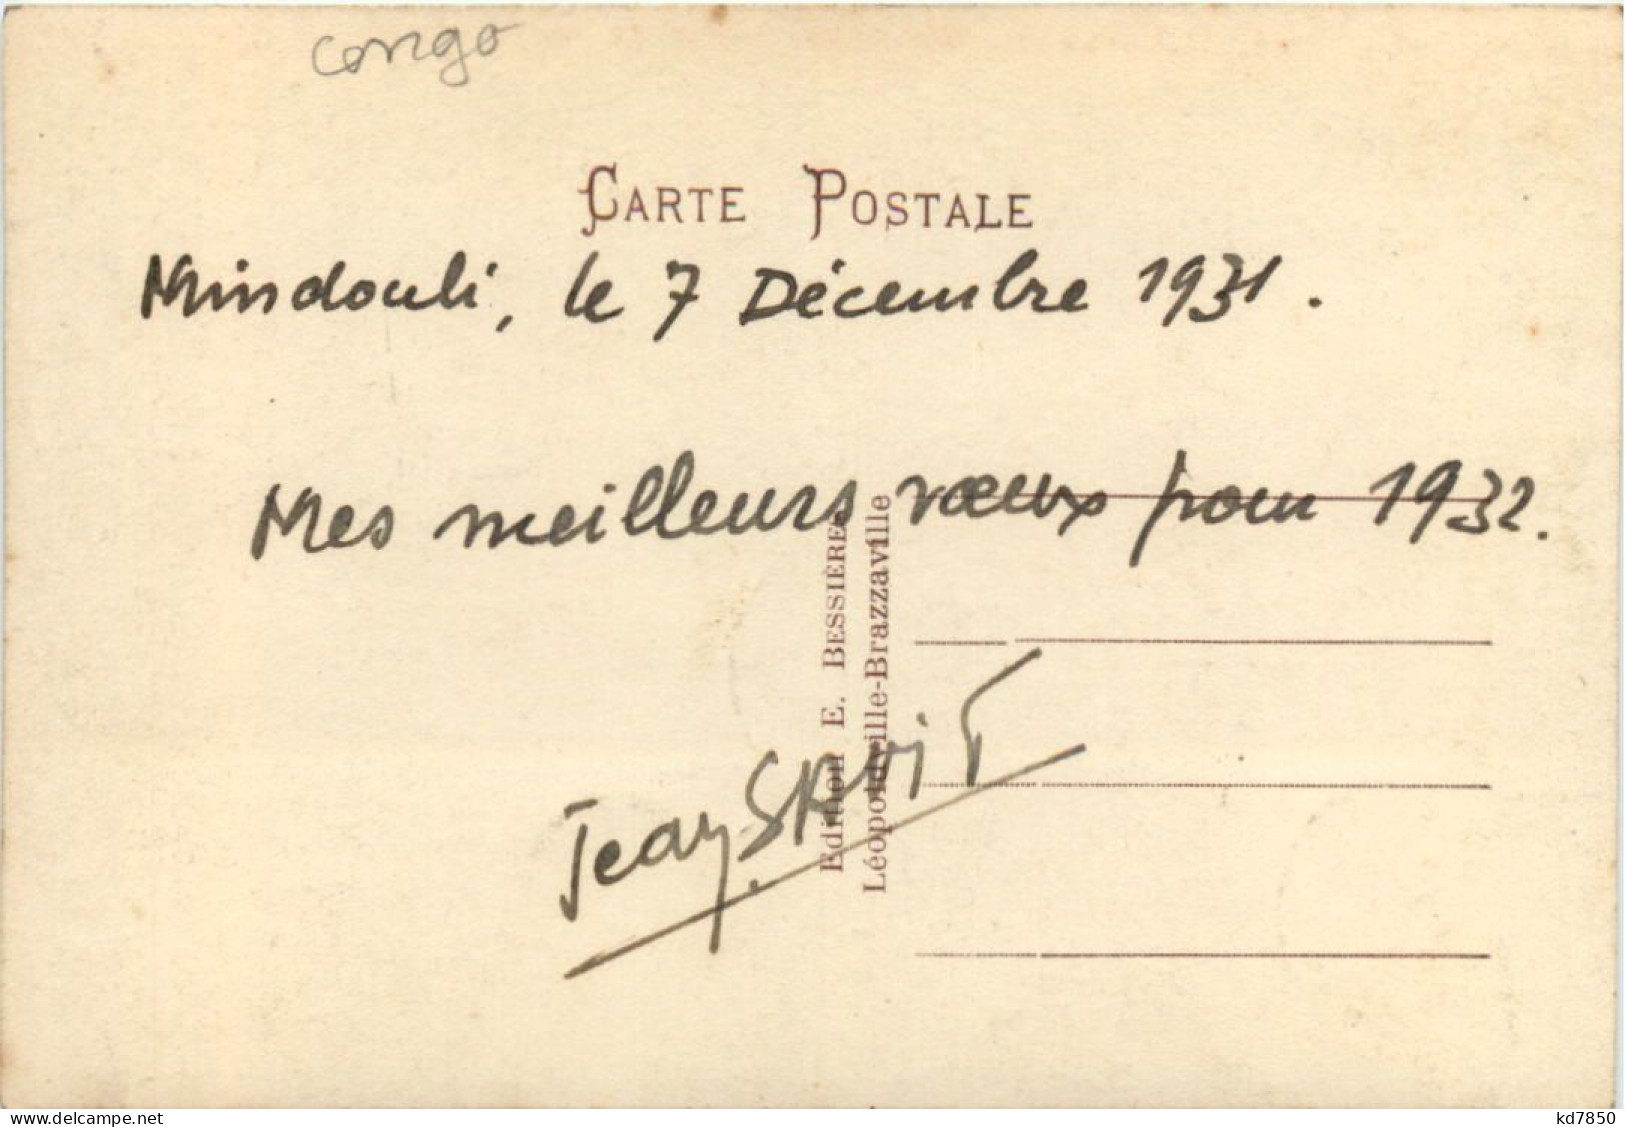 congo
CARTE POSTALE
Mindouli, le 7 Décembre 1931.
Mes meilleurs vœux pour 1932.
Edition E. BESSIÈRE
Léopoldville-Brazzaville
Jean
www.delcampe.net
kd7850